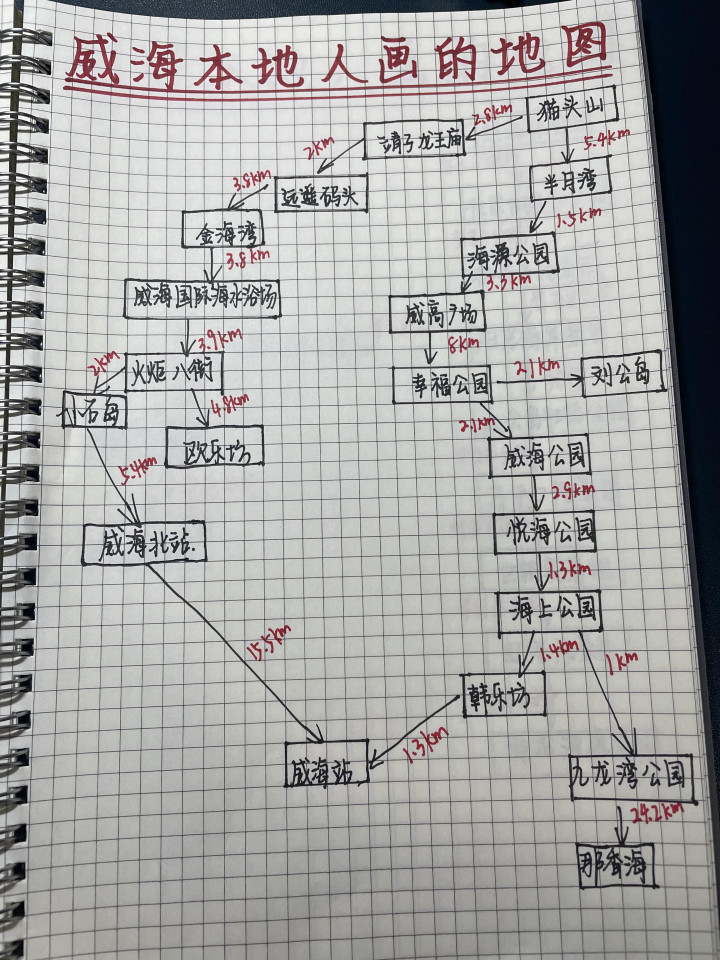 威海本地人画的地图
猫头山
2.8km
靖子龙王庙
5.4km
2km
半月湾
远遥码头
3.8km
1.5km
金海湾
海源公园
3.8km
3.3km
威海国际海水浴场
威高广场
3.9km
8km
2km
火炬八街
2.1km
刘公岛
幸福公园
小石岛
4.8km
2.1km
欧乐坊
威海公园
5.4km
2.9km
威海北站
悦海公园
1.3km
海上公园
15.5km
1.4km
1km
韩乐坊
1.3km
威海站
九龙湾公园
24.2km
那香海